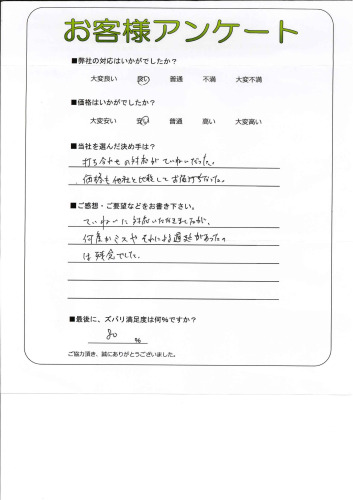 お客様アンケート
■弊社の対応はいかがでしたか？
大変良い　良い　普通　不満　大変不満
■価格はいかがでしたか？
大変安い　安い　普通　高い　大変高い
■当社を選んだ決め手は？
打ち合わせの対応がていねいだった。
価格も他社と比較してお値打ちだった。
■ご感想・ご要望などをお書き下さい。
ていねいに対応いただきましたが、
何度かミスやそれによる遅延があったの
は残念でした。
■最後に、ズバリ満足度は何%ですか？
80
%
ご協力頂き、誠にありがとうございました。